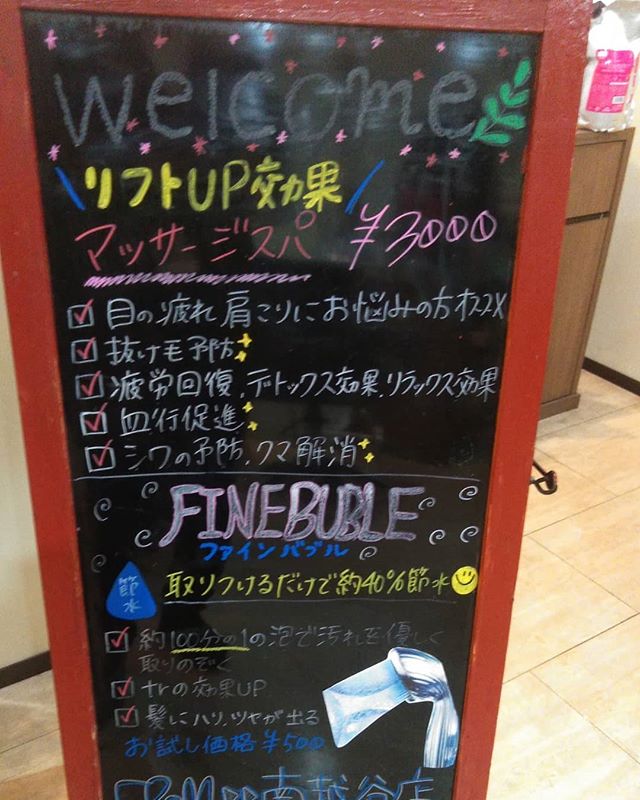 welcome
リフトUP効果
マッサージスパ ¥3000
目の疲れ 肩こりにお悩みの方オススメ
抜け毛予防
疲労回復,デトックス効果,リラックス効果
血行促進
シワの予防,クマ解消
FINEBUBLE
ファインバブル
節水
取りつけるだけで約40%節水
約100分の1の泡で汚れを優しく
取りのぞく
trの効果UP
髪にハリ,ツヤが出る
お試し価格¥500
南越谷店